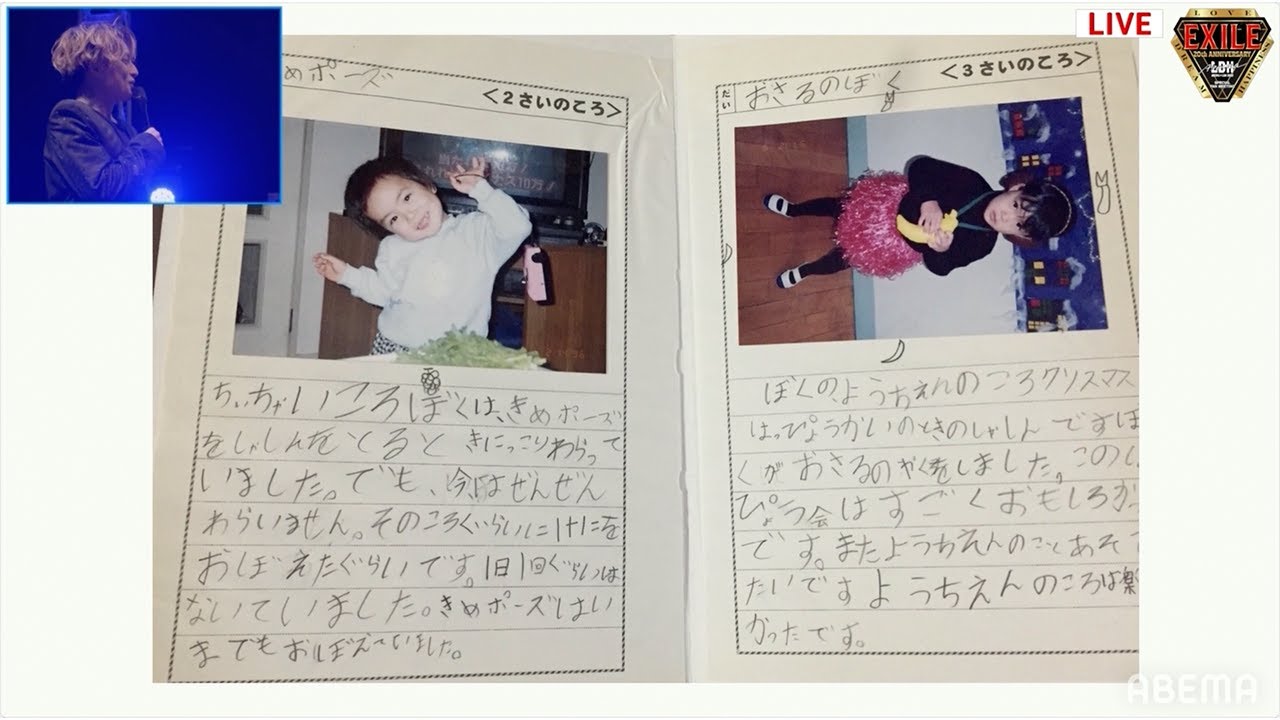 LIVE
LOVE
EXILE
20th ANNIVERSARY
LDH
DREAM
HAPPINESS
めポーズ
<2さいのころ>
ちいちゃいころぼくは、きめポーズ
をしゃしんをとると きにっこりわらって
いました。でも、今はぜんぜん
わらいません。そのころくらいに
おぼえたぐらいです。1日1回ぐらいは
ないていました。きめポーズはい
までもおぼえていました。
だい
おさるのぼく
<3さいのころ>
ぼくの、ようちえんのころクリスマス
はっぴょうかいのときのしゃしんですぼ
くがおさるのやくをしました。このし
ぴょう会はすごくおもしろかっ
です。またようちえんのことあそ
たいですようちえんのころは楽
かったです。
ABEMA